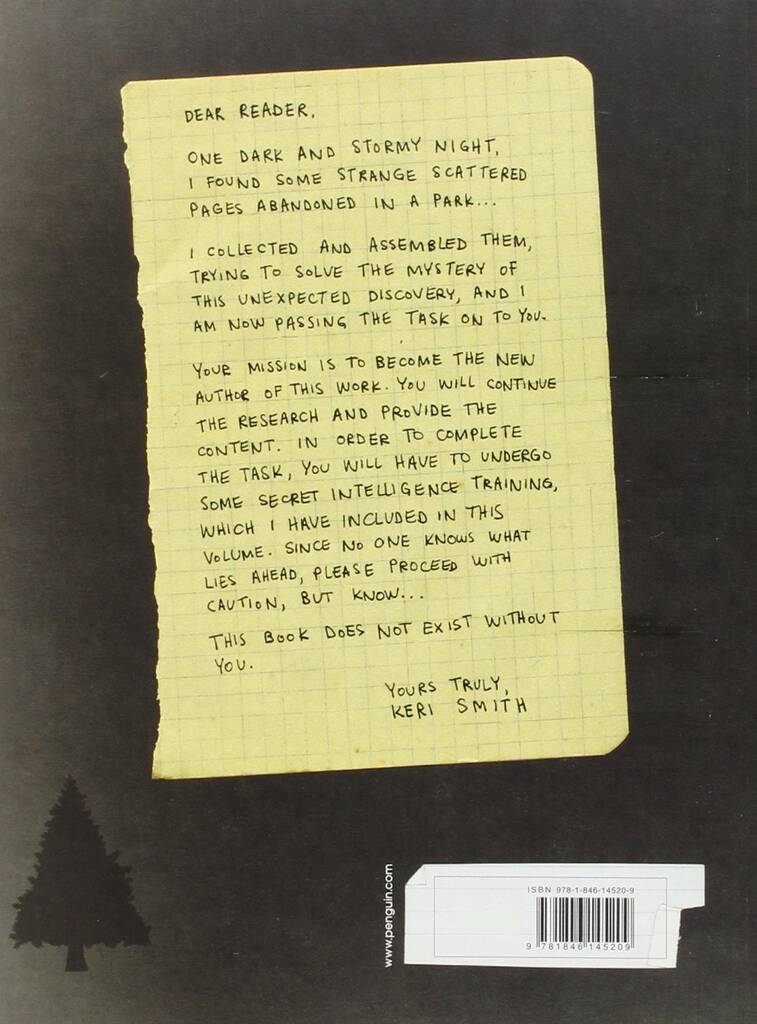 DEAR READER,
ONE DARK AND STORMY NIGHT,
I FOUND SOME STRANGE SCATTERED
PAGES ABANDONED IN A PARK...
I COLLECTED AND ASSEMBLED THEM,
TRYING TO SOLVE THE MYSTERY OF
THIS UNEXPECTED DISCOVERY, AND I
AM NOW PASSING THE TASK ON TO YOU.
YOUR MISSION IS TO BECOME THE NEW
AUTHOR OF THIS WORK. YOU WILL CONTINUE
THE RESEARCH AND PROVIDE THE
CONTENT. IN ORDER TO COMPLETE
THE TASK, YOU WILL HAVE TO UNDERGO
SOME SECRET INTELLIGENCE TRAINING,
WHICH I HAVE INCLUDED IN THIS
VOLUME. SINCE NO ONE KNOWS WHAT
LIES AHEAD, PLEASE PROCEED WITH
CAUTION, BUT KNOW...
THIS BOOK DOES NOT EXIST WITHOUT
YOU.
YOURS TRULY,
KERI SMITH
www.penguin.com
ISBN 978-1-846-14520-9
9 781846 145209